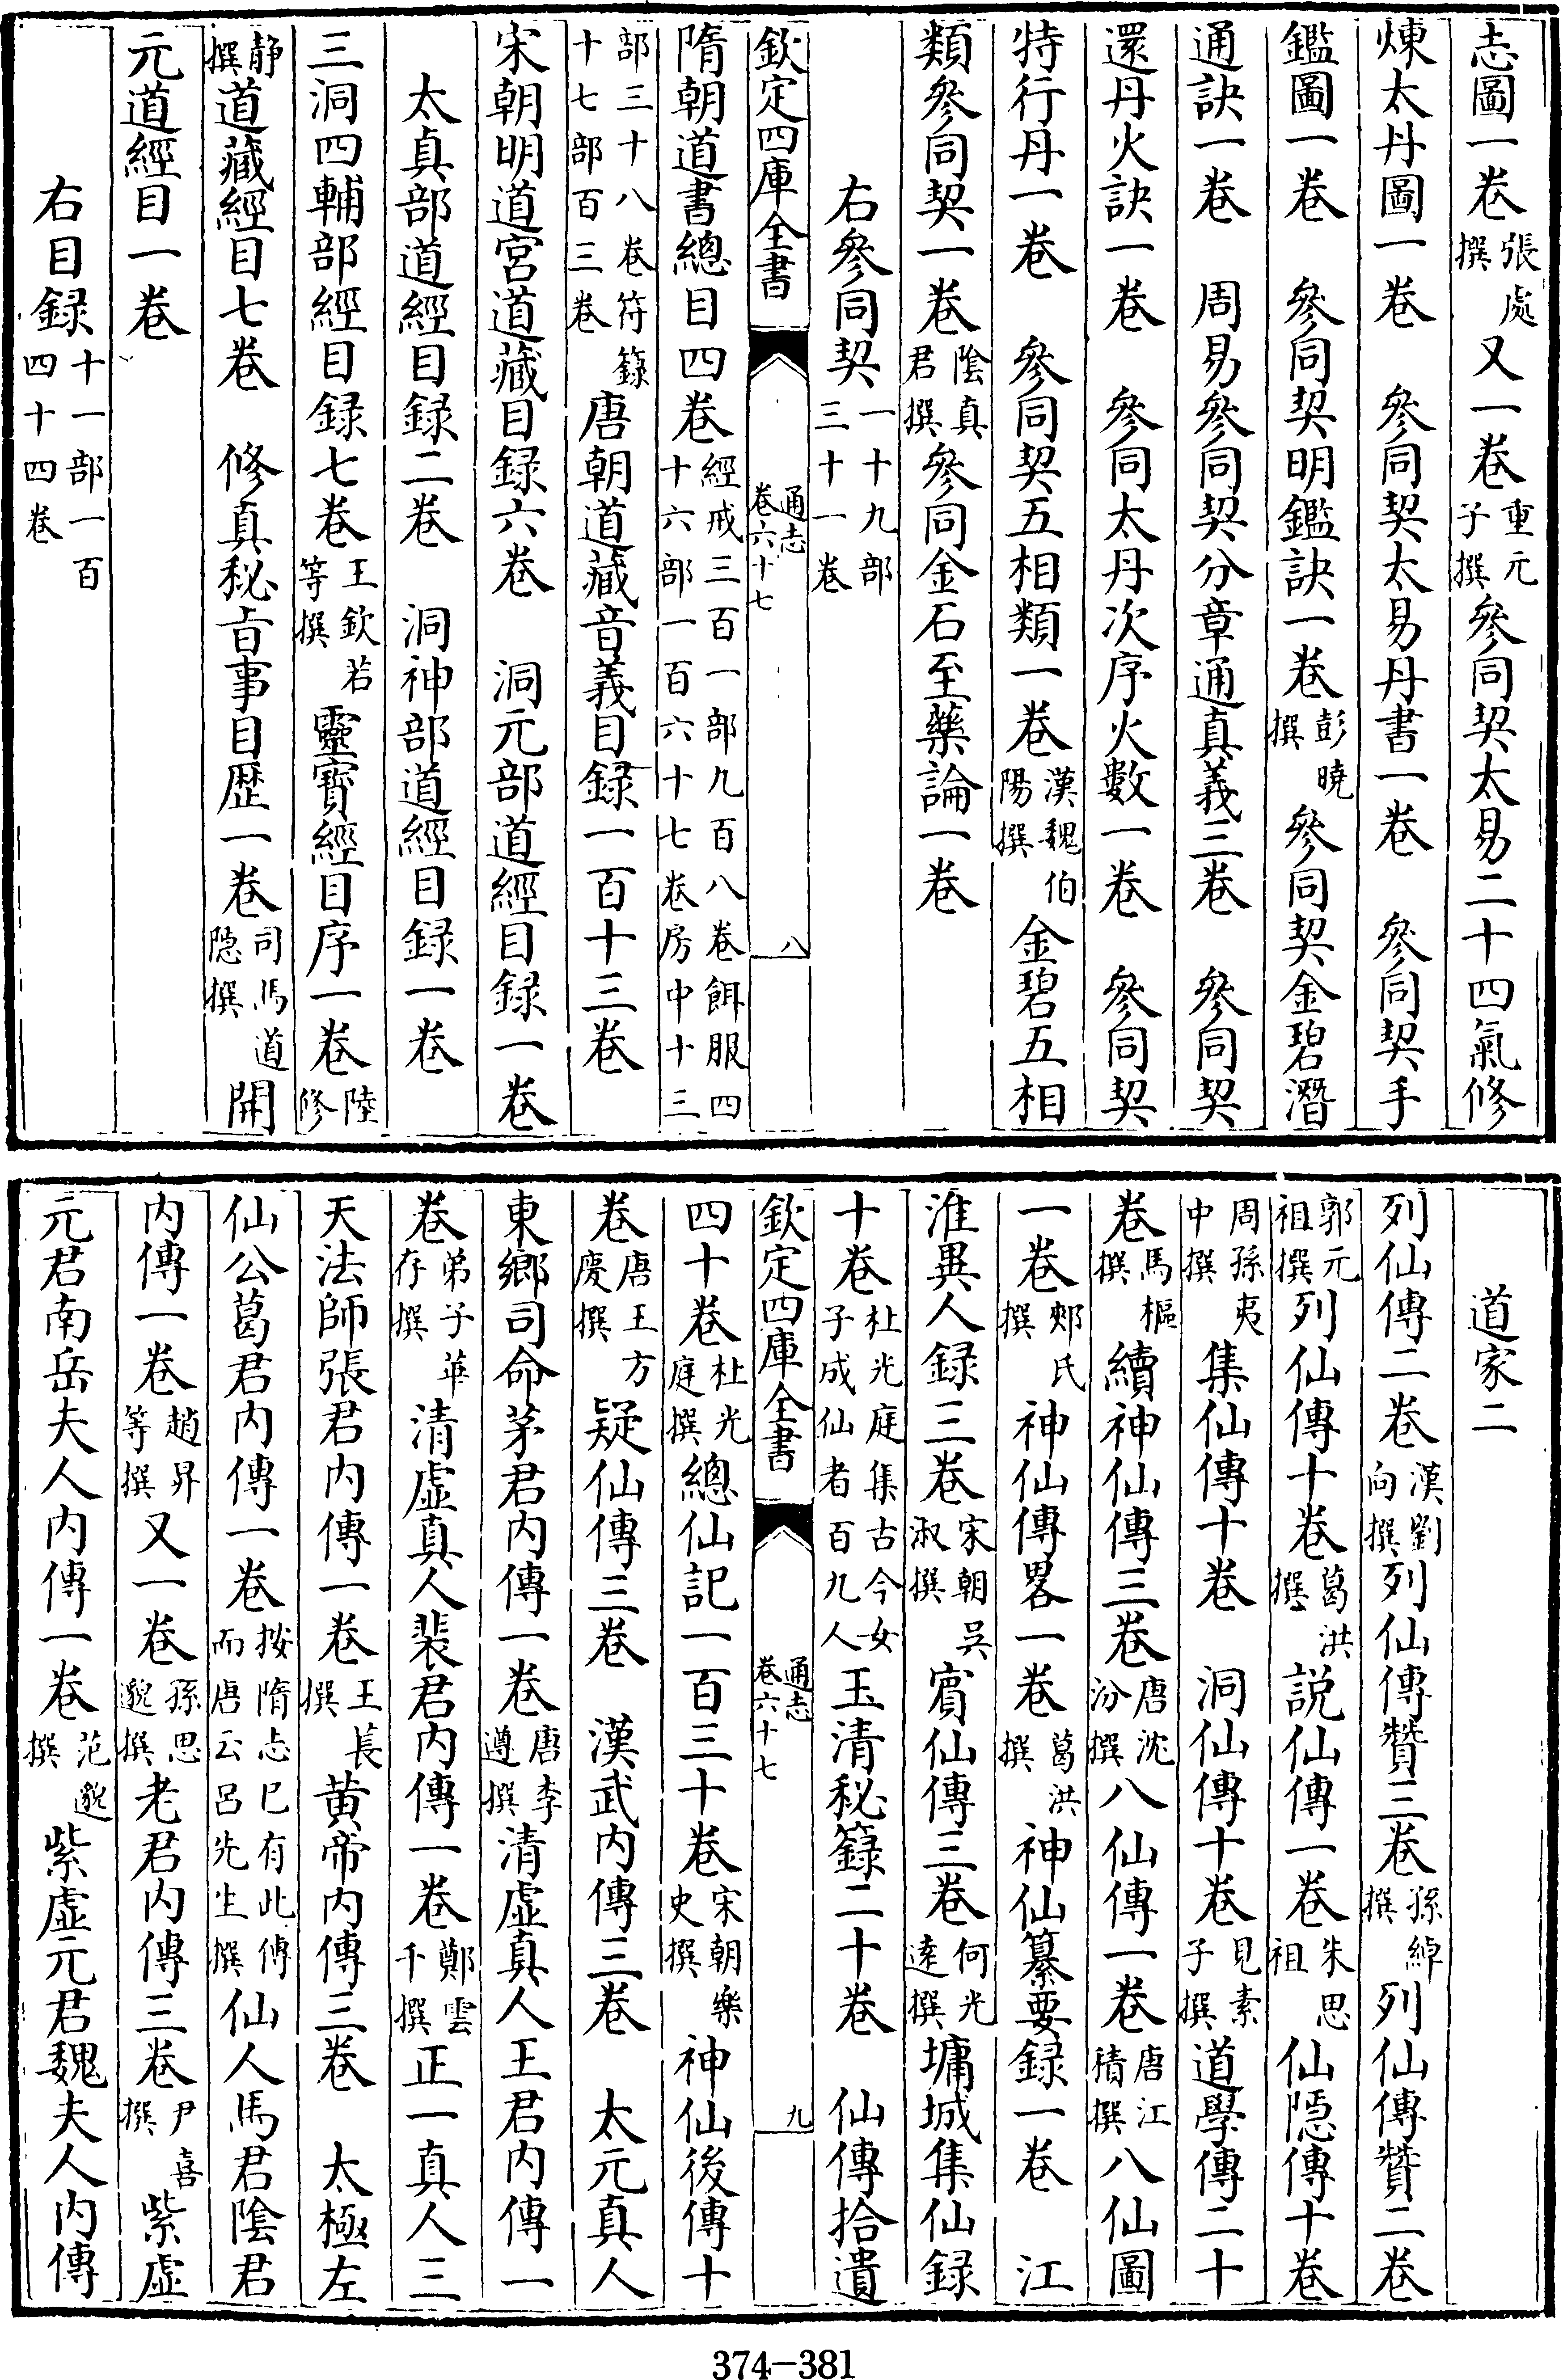 志圖一卷張處撰又一卷重元子撰參同契太易二十四氣修
煉太丹圖一卷　參同契太易丹書一卷　參同契手
鑑圖一卷　參同契明鑑訣一卷彭曉撰參同契金碧潛
通訣一卷　周易參同契分章通真義三卷　參同契
還丹火訣一卷　參同太丹次序火數一卷　參同契
特行丹一卷　參同契五相類一卷漢魏伯陽撰金碧五相
類參同契一卷陰真君撰參同金石至藥論一卷
右參同契一十九部三十一卷
欽定四庫全書　通志卷六十七　八
隋朝道書總目四卷經戒三百一部九百八卷餌服四十六部一百六十七卷房中十三
部三十八卷符籙十七部百三卷唐朝道藏音義目録一百十三卷
宋朝明道宮道藏目録六卷　洞元部道經目録一卷
太真部道經目録二卷　洞神部道經目録一卷
三洞四輔部經目録七卷王欽若等撰靈寶經目序一卷陸修
静撰道藏經目七卷　修真秘㫖事目歷一卷司馬道隠撰開
元道經目一卷
右目録十一部一百四十四卷
道家二
列仙傳二卷漢劉向撰列仙傳贊三卷孫綽撰列仙傳贊二卷
郭元祖撰列仙傳十卷葛洪撰説仙傳一卷朱思祖仙隠傳十卷
周孫夷中撰集仙傳十卷　洞仙傳十卷見素子撰道學傳二十
卷馬樞撰續神仙傳三卷唐沈汾撰八仙傳一卷唐江積撰八仙圖
一卷郟氏撰神仙傳畧一卷葛洪撰神仙纂要録一卷　江
淮異人録三卷宋朝吳淑撰賓仙傳三卷何光逺撰墉城集仙録
十卷杜光庭集古今女子成仙者百九人玉清秘籙二十卷　仙傳拾遺
欽定四庫全書　通志卷六十七　九
四十卷杜光庭撰總仙記一百三十卷宋朝樂史撰神仙後傳十
卷唐王方慶撰疑仙傳三卷　漢武内傳三卷　太元真人
東鄉司命茅君内傳一卷唐李遵撰清虛真人王君内傳一
卷弟子華存撰清虛真人裴君内傳一卷鄭雲千撰正一真人三
天法師張君内傳一卷王長撰黄帝内傳三卷　太極左
仙公葛君内傳一卷按隋志已有此傳而唐云呂先生撰仙人馬君陰君
内傳一卷趙昇等撰又一卷孫思邈撰老君内傳三卷尹喜撰紫虛
元君南岳夫人内傳一卷范邈撰紫虛元君魏夫人内傳
374-381